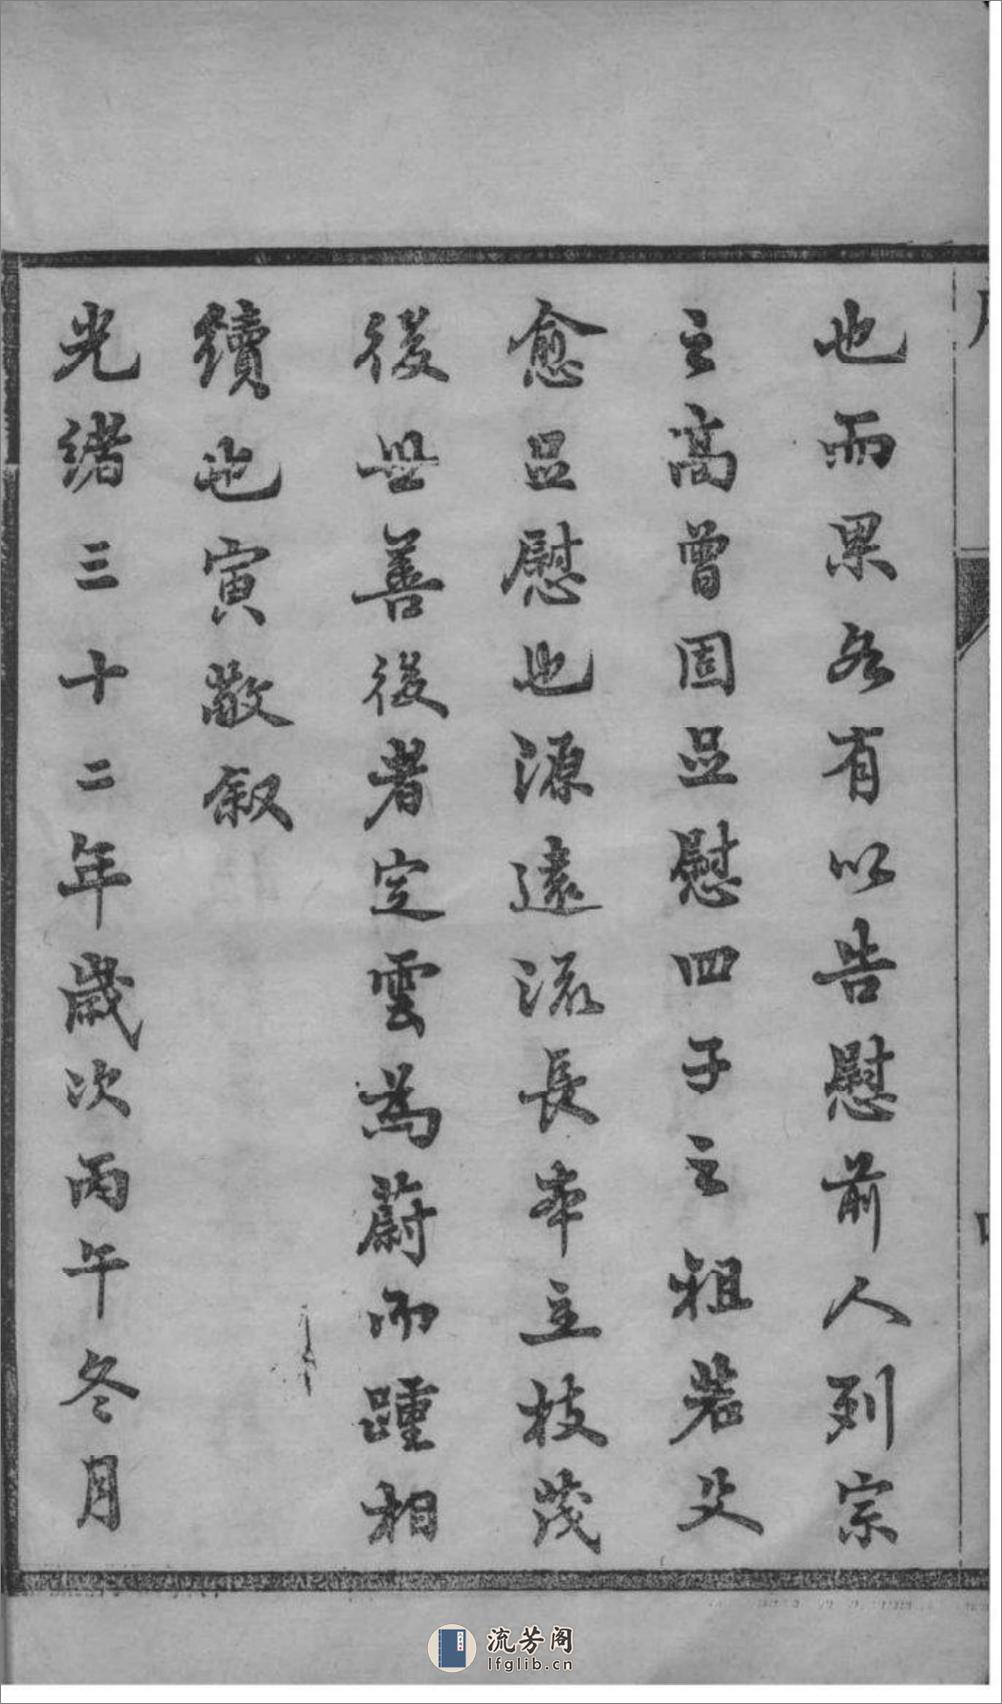 也而果各有以告慰前人列宗
之高曾固足慰四子之祖若父
愈足慰也源遠流長本立枝茂
後世善後者定雲為蔚而踵相
續也寅敬叙
光緒三十二年歲次丙午冬月
流芳阁
lfglib.cn